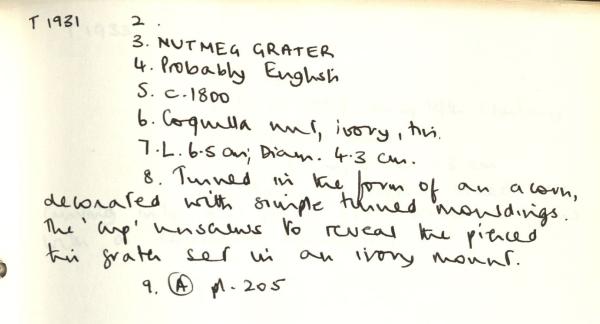 T 1931 2.
3. NUTMEG GRATER
4. Probably English
5. c.1800
6. Coquilla nut, ivory, tin.
7. L. 6.5 cm; Diam. 4.3 cm.
8. Turned in the form of an acorn,
decorated with simple turned mouldings.
The 'cup' unscrews to reveal the pierced
tin grater set in an ivory mount.
9. (A) pl. 205